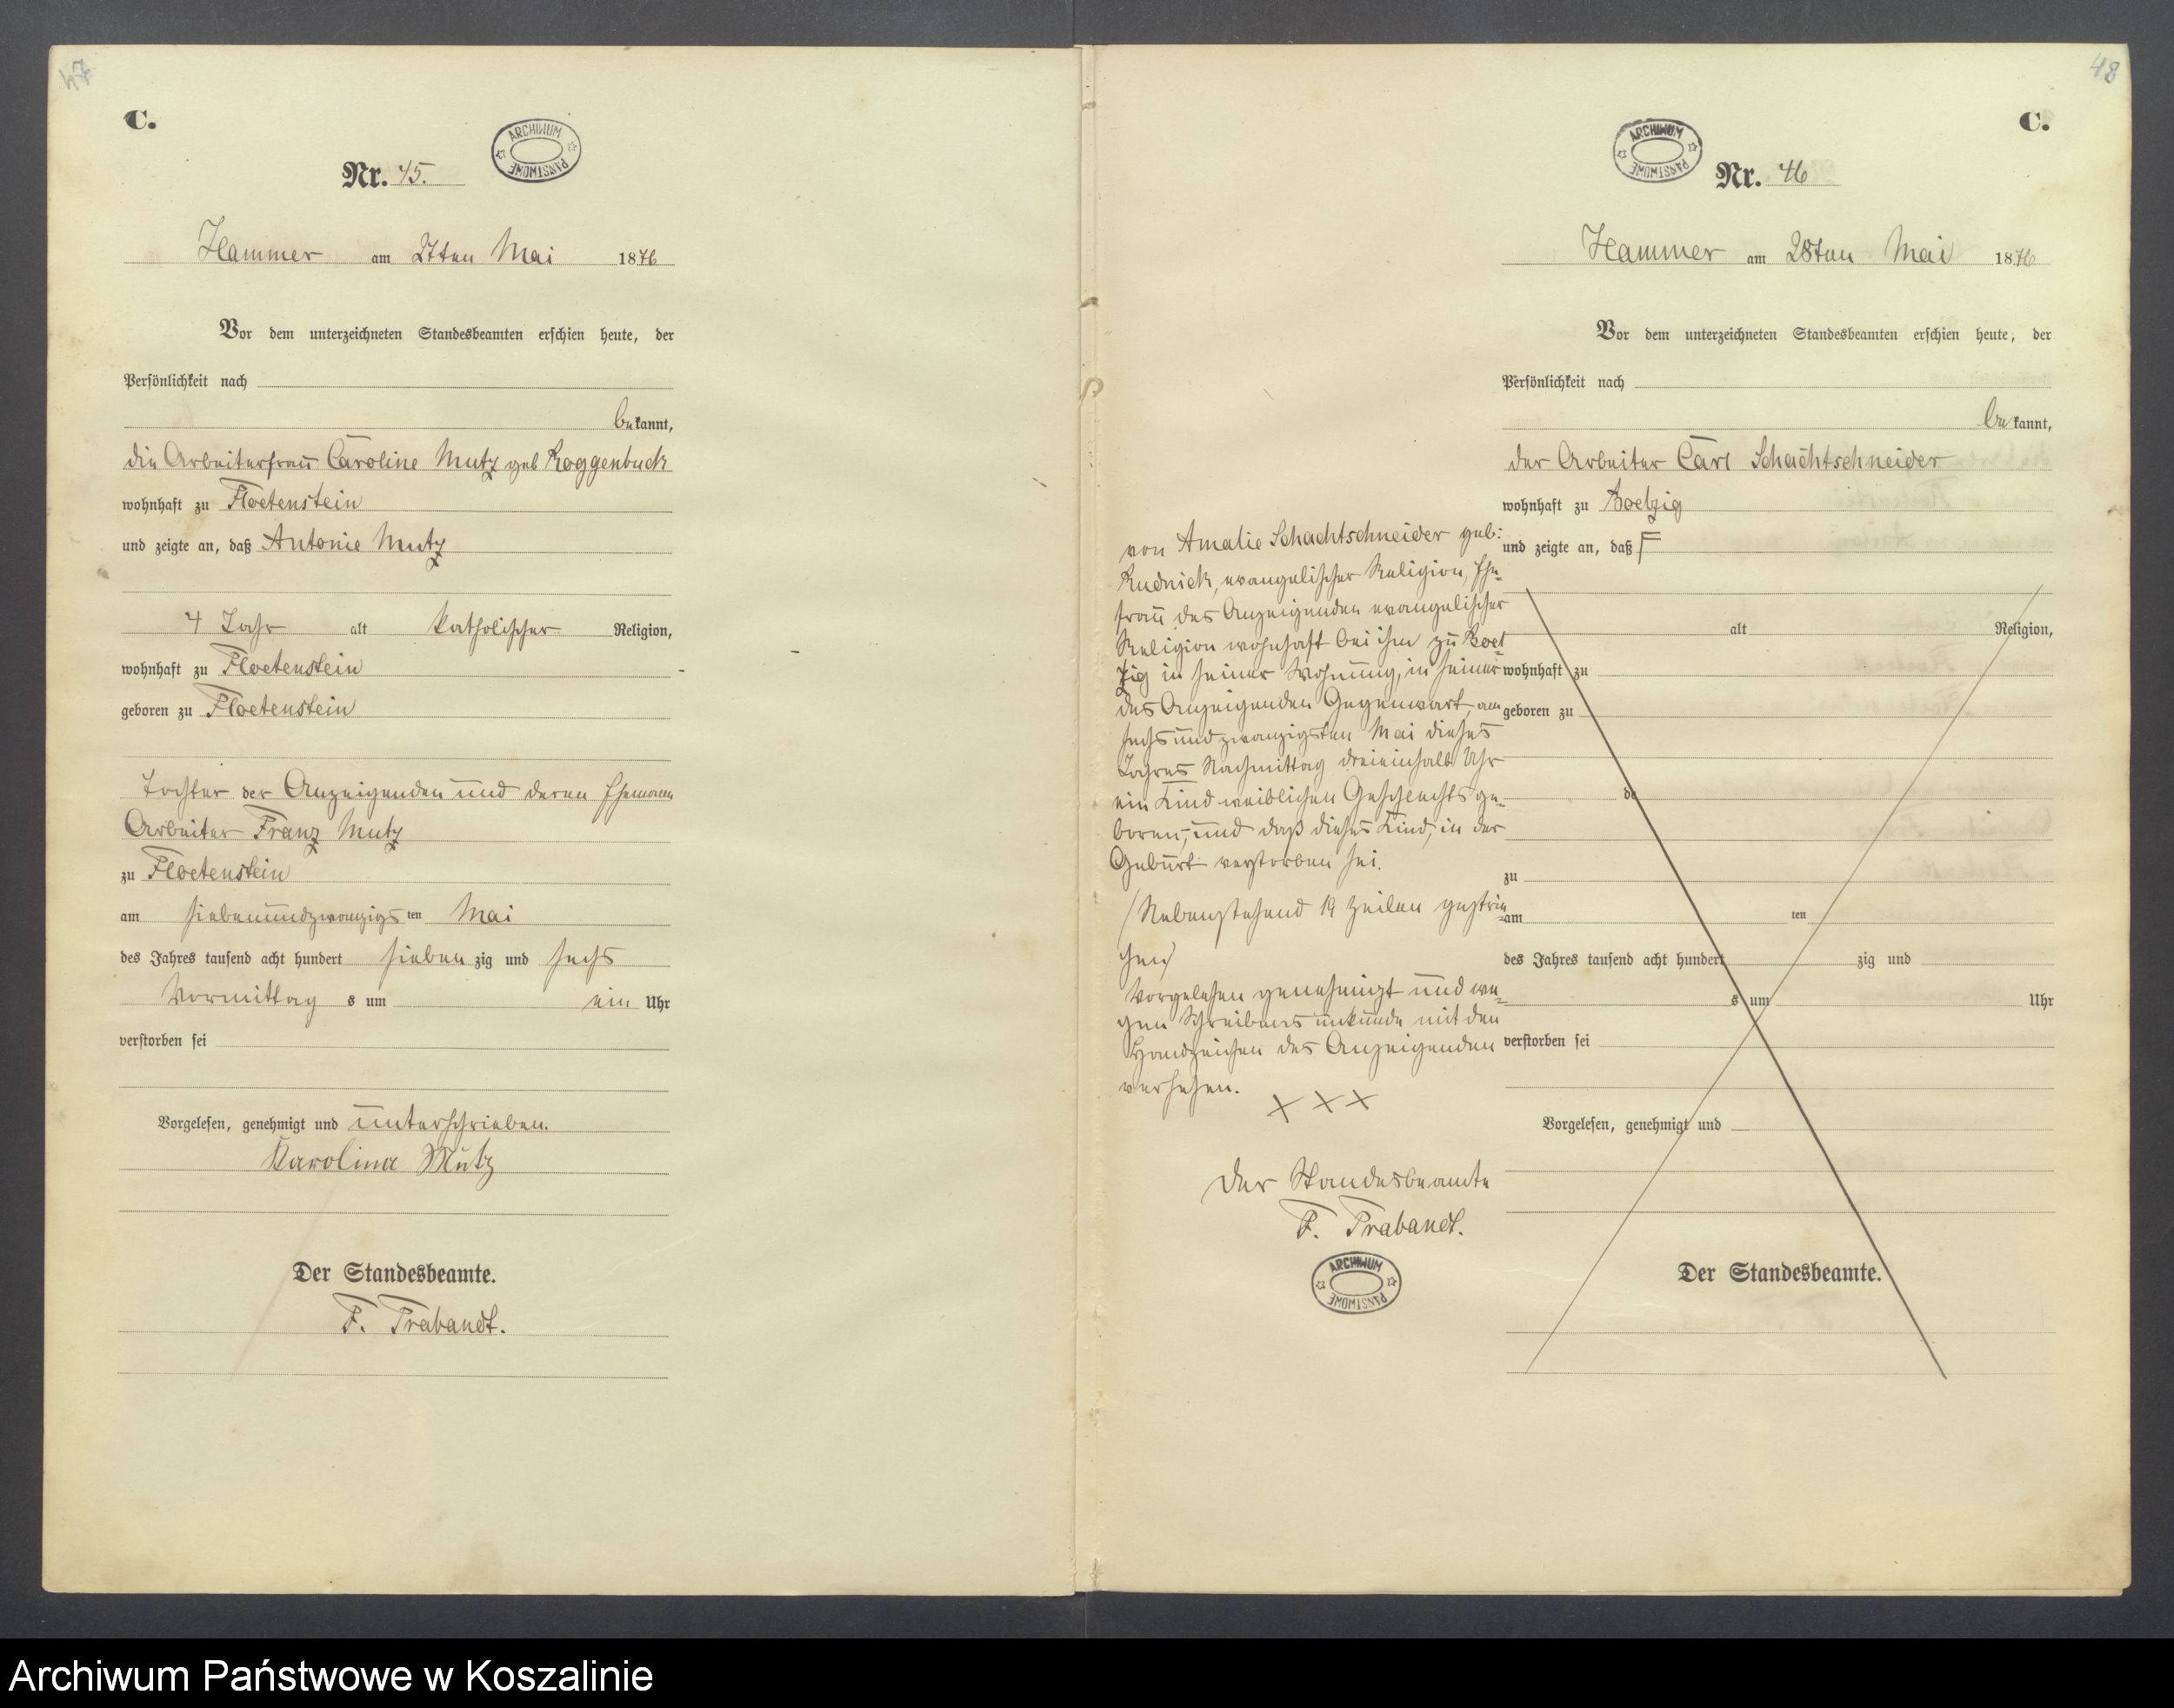 47
C.
ARCHIWUM PAŃSTWOWE
Nr. 45.
Hammer am 27ten Mai 1876
Vor dem unterzeichneten Standesbeamten erschien heute, der
Persönlichkeit nach
bekannt,
die Arbeiterfrau Caroline Mutz geb Roggenbuck
wohnhaft zu Floetenstein
und zeigte an, daß Antonie Mutz
4 Jahr alt katholischer Religion,
wohnhaft zu Floetenstein
geboren zu Floetenstein
Tochter der Anzeigenden und deren Ehemann
Arbeiter Franz Mutz
zu Floetenstein
am siebenundzwanzigsten Mai
des Jahres tausend acht hundert siebenzig und sechs
Vormittags um ein Uhr
verstorben sei
Vorgelesen, genehmigt und unterschrieben.
Karolina Mutz
Der Standesbeamte.
F. Trabandt.
48
C.
ARCHIWUM PAŃSTWOWE
Nr. 46
Hammer am 28ten Mai 1876
Vor dem unterzeichneten Standesbeamten erschien heute, der
Persönlichkeit nach
bekannt,
der Arbeiter Carl Schachtschneider
wohnhaft zu Boelzig
und zeigte an, daß
von Amalie Schachtschneider geb:
Rudnick, evangelischer Religion, Ehe-
frau des Anzeigenden evangelischer
Religion wohnhaft bei ihm zu Boel
zig in seiner Wohnung, in seiner
des Anzeigenden Gegenwart, am
sechsundzwanzigsten Mai dieses
Jahres Nachmittag dreieinhalb Uhr
ein Kind weiblichen Geschlechts ge-
boren, und daß dieses Kind, in der
Geburt verstorben sei.
(Nebenstehend 19 Zeilen gestri-
chen)
Vorgelesen genehmigt und we-
gen Schreibens unkunde mit den
Handzeichen des Anzeigenden
versehen.
XXX
Der Standesbeamte
F. Trabandt.
ARCHIWUM PAŃSTWOWE
alt Religion,
wohnhaft zu
geboren zu
de
zu
am ten
des Jahres tausend acht hundert zig und
s um Uhr
verstorben sei
Vorgelesen, genehmigt und
Der Standesbeamte.
Archiwum Państwowe w Koszalinie